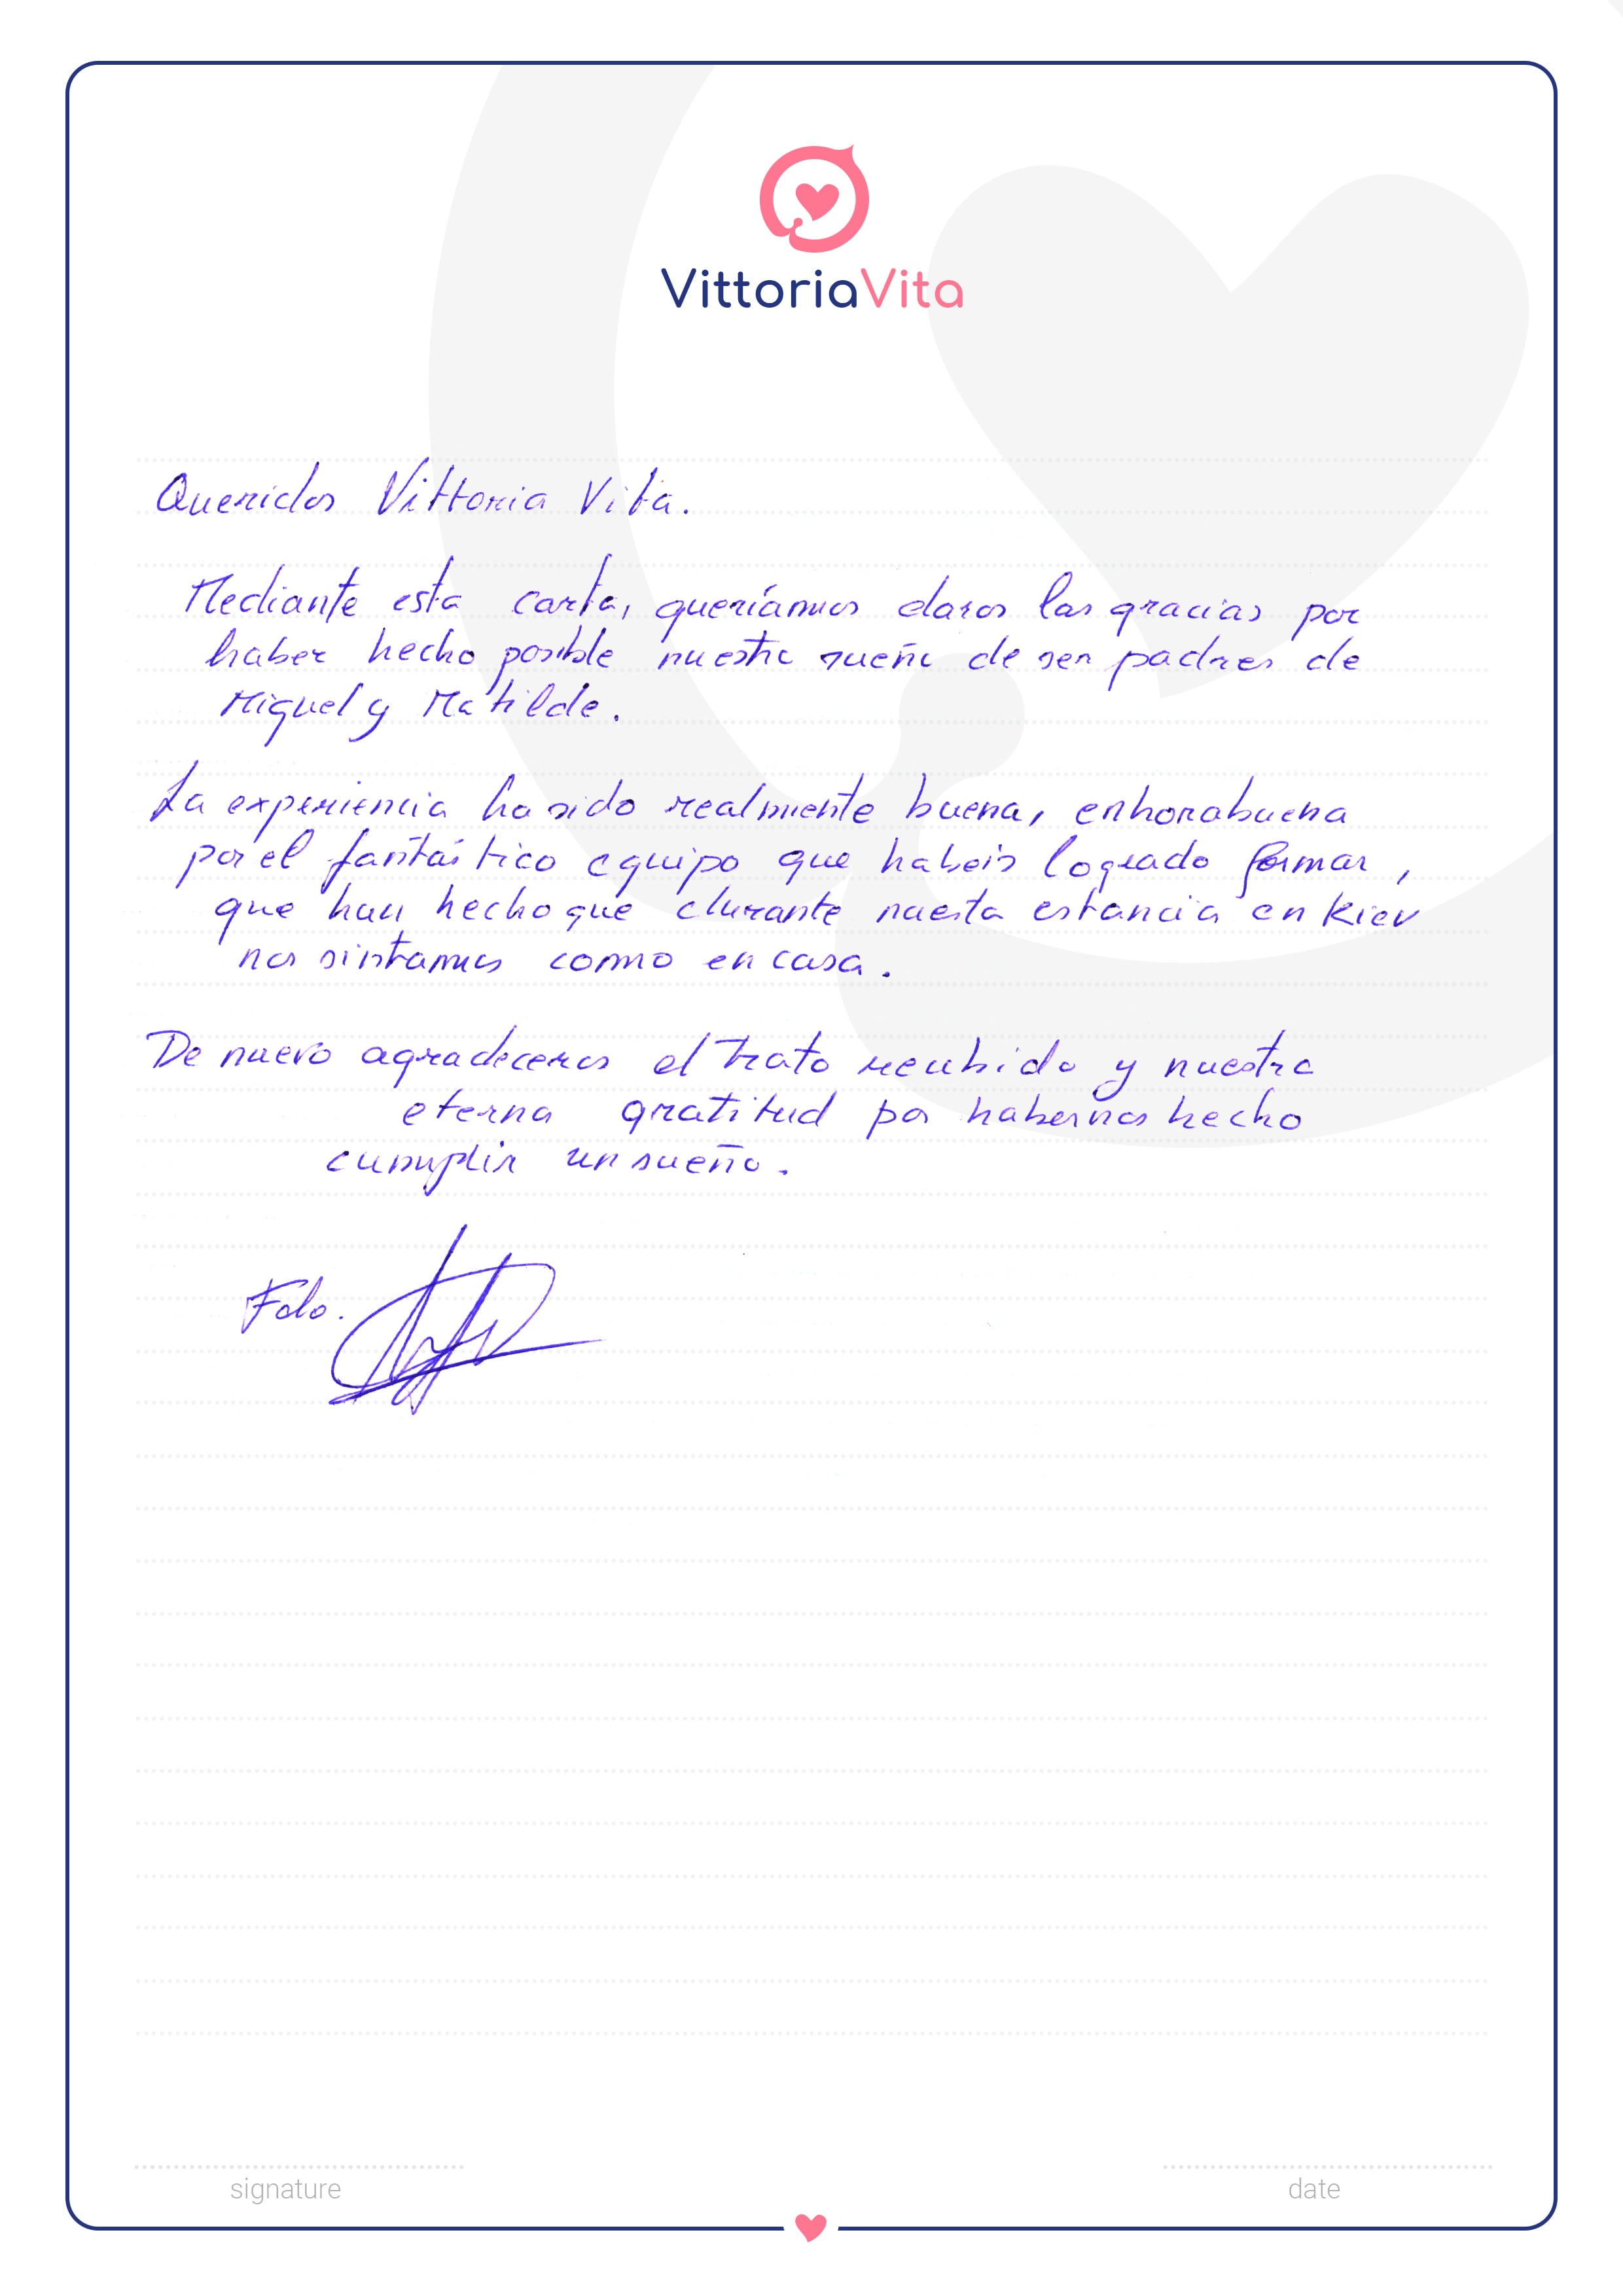 VittoriaVita
Queridos Vittoria Vita.
Mediante esta carta, queríamos daros las gracias por
haber hecho posible nuestro sueño de ser padres de
Miguel y Matilde.
La experiencia ha sido realmente buena, enhorabuena
por el fantástico equipo que habeis logrado formar,
que han hecho que durante nuesta estancia en Kiev
nos sintamos como en casa.
De nuevo agradeceros el trato recibido y nuestra
eterna gratitud por habernos hecho
cumplir un sueño.
Fdo.
signature
date